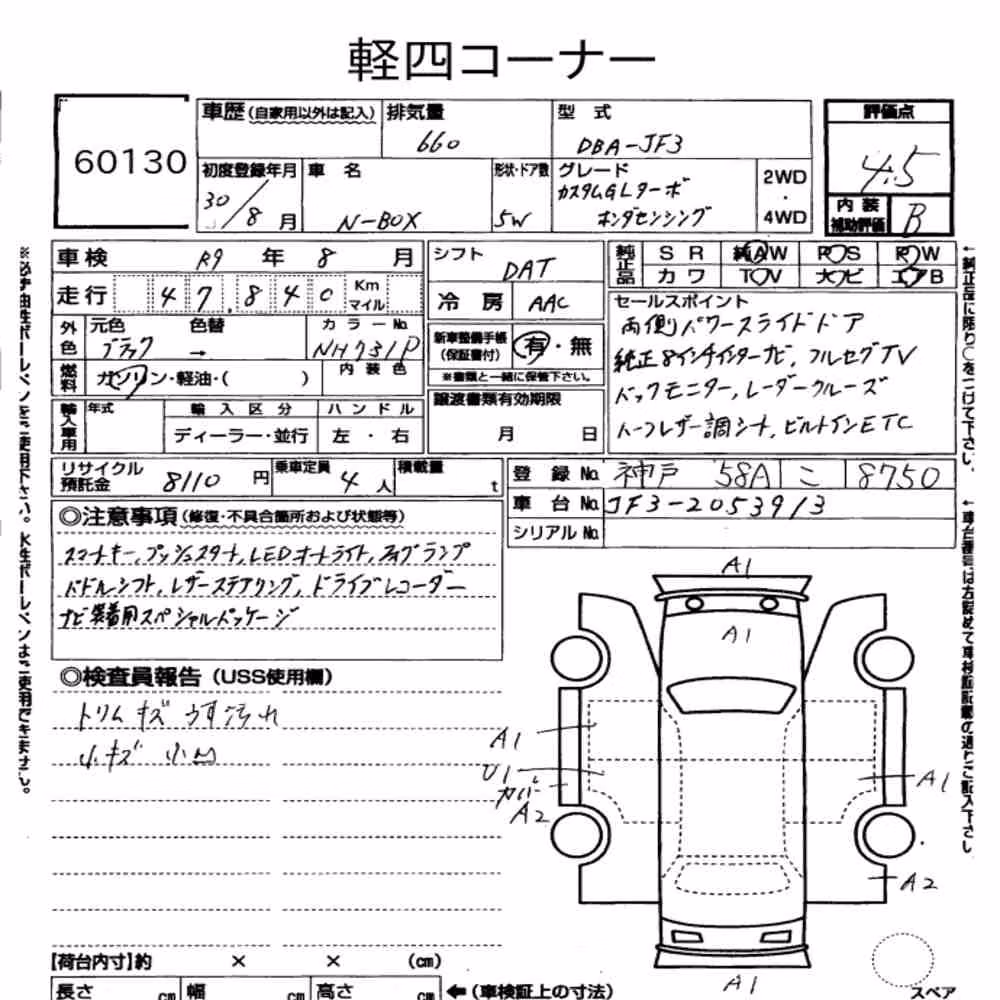 軽四コーナー
60130
車歴(自家用以外は記入) 排気量 660 型式 DBA-JF3
初度登録年月 30/8月 車名 N-BOX 形状・ドア数 5W グレード カスタムGLターボ ホンダセンシング 2WD・4WD
評価点 4.5
内装補助評価 B
車検 R9年 8月
走行 47,840 Km マイル
外色 元色 ブラック 色替 → カラーNo. NH731P
燃料 ガソリン・軽油・( ) 内装色
輸入車用 年式 輸入区分 ディーラー・並行 ハンドル 左・右
シフト DAT
冷房 AAC
新車整備手帳(保証書付) 有・無
※書類と一緒に保管下さい。
譲渡書類有効期限
月 日
純正品 SR 純AW PS PW
カワ TV 大ビ エアB
セールスポイント
両側パワースライドドア
純正8インチインターナビ, フルセグTV
バックモニター, レーダークルーズ
ハーフレザー調シート, ビルトインETC
リサイクル預託金 8110円 乗車定員 4人 積載量 t
登録No. 神戸 58A こ 8750
車台No. JF3-2053913
シリアルNo.
◎注意事項(修復・不具合箇所および状態等)
スマートキー, プッシュスタート, LEDオートライト, フォグランプ
パドルシフト, レザーステアリング, ドライブレコーダー
ナビ装着用スペシャルパッケージ
◎検査員報告(USS使用欄)
トリムキズ うす汚れ
小キズ 小凹
A1
A1
A1
U1
カバー
A2
A1
A2
A1
スペア
【荷台内寸】約 × × (cm)
長さ cm 幅 cm 高さ cm ←(車検証上の寸法)
※必ず油性ボールペンを使用下さい。水性ボールペンはご使用できません。
←純正品に限り○をつけて下さい。
←車台番号は左詰めで車検証記載の通りご記入下さい。